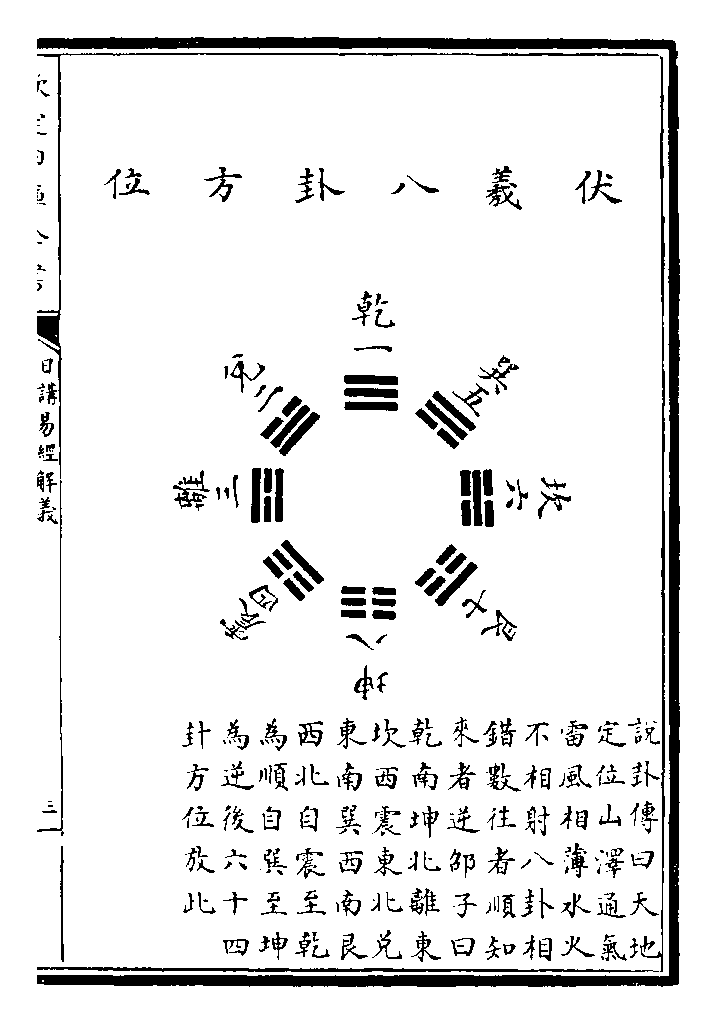 伏羲八卦方位
乾一
兌二
離三
震四
巽五
坎六
艮七
坤八
說卦傳曰天地
定位山澤通氣
雷風相薄水火
不相射八卦相
錯數往者順知
來者逆邵子曰
乾南坤北離東
坎西震東北兌
東南巽西南艮
西北自震至乾
為順自巽至坤
為逆後六十四
卦方位放此
欽定四庫全書
日講易經解義
三